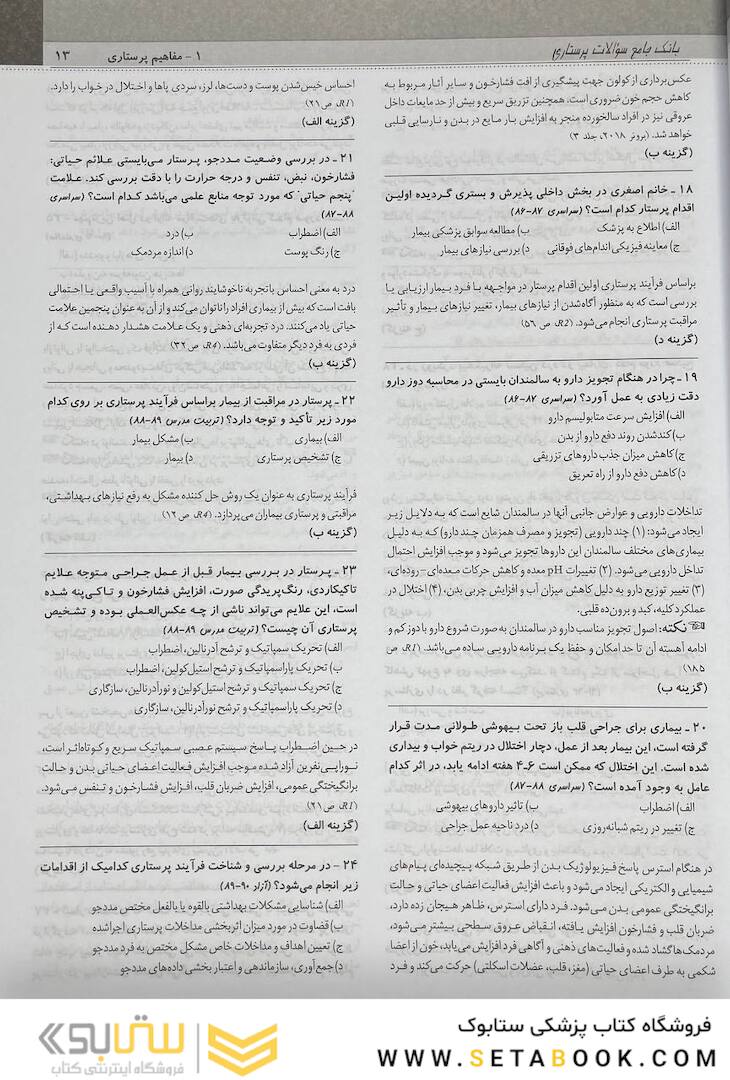 بانک جامع سؤالات پرستاری
۱ - مفاهیم پرستاری
۱۳
عکس‌برداری از کولون جهت پیشگیری از افت فشارخون و سایر آثار مربوط به
کاهش حجم خون ضروری است. همچنین تزریق سریع و بیش از حد مایعات داخل
عروقی نیز در افراد سالخورده منجر به افزایش بار مایع در بدن و نارسایی قلبی
خواهد شد. (برونر ۲۰۱۸، جلد ۳)
(گزینه ب)
۱۸ - خانم اصغری در بخش داخلی پذیرش و بستری گردیده اولین
اقدام پرستار کدام است؟ (سراسری ۸۷-۸۶)
الف) اطلاع به پزشک
ب) مطالعه سوابق پزشکی بیمار
ج) معاینه فیزیکی اندام‌های فوقانی
د) بررسی نیازهای بیمار
براساس فرآیند پرستاری اولین اقدام پرستار در مواجهه با فرد بیمار ارزیابی یا
بررسی است که به منظور آگاه‌شدن از نیازهای بیمار، تغییر نیازهای بیمار و تأثیر
مراقبت پرستاری انجام می‌شود. (R2، ص ۵۶)
(گزینه د)
۱۹ - چرا در هنگام تجویز دارو به سالمندان بایستی در محاسبه دوز دارو
دقت زیادی به عمل آورد؟ (سراسری ۸۷-۸۶)
الف) افزایش سرعت متابولیسم دارو
ب) کندشدن روند دفع دارو از بدن
ج) کاهش میزان جذب داروهای تزریقی
د) کاهش دفع دارو از راه تعریق
تداخلات دارویی و عوارض جانبی آنها در سالمندان شایع است که به دلایل زیر
ایجاد می‌شود: (۱) چند دارویی (تجویز و مصرف همزمان چند دارو) که به دلیل
بیماری‌های مختلف سالمندان این داروها تجویز می‌شود و موجب افزایش احتمال
تداخل دارویی می‌شود. (۲) تغییرات pH معده و کاهش حرکات معده‌ای-روده‌ای،
(۳) تغییر توزیع دارو به دلیل کاهش میزان آب و افزایش چربی بدن، (۴) اختلال در
عملکرد کلیه، کبد و برون‌ده قلبی.
نکته: اصول تجویز مناسب دارو در سالمندان به صورت شروع دارو با دوز کم و
ادامه آهسته آن تا حد امکان و حفظ یک برنامه دارویی ساده می‌باشد. (R1، ص
۱۸۵)
(گزینه ب)
۲۰ - بیماری برای جراحی قلب باز تحت بیهوشی طولانی مدت قرار
گرفته است، این بیمار بعد از عمل، دچار اختلال در ریتم خواب و بیداری
شده است. این اختلال که ممکن است ۶-۴ هفته ادامه یابد، در اثر کدام
عامل به وجود آمده است؟ (سراسری ۸۸-۸۷)
الف) اضطراب
ب) تاثیر داروهای بیهوشی
ج) تغییر در ریتم شبانه‌روزی
د) درد ناحیه عمل جراحی
در هنگام استرس پاسخ فیزیولوژیک بدن از طریق شبکه پیچیده‌ای پیام‌های
شیمیایی و الکتریکی ایجاد می‌شود و باعث افزایش فعالیت اعضای حیاتی و حالت
برانگیختگی عمومی بدن می‌شود. فرد دارای استرس، ظاهر هیجان زده دارد،
ضربان قلب و فشارخون افزایش یافته، انقباض عروق سطحی بیشتر می‌شود،
مردمک‌ها گشاد شده و فعالیت‌های ذهنی و آگاهی فرد افزایش می‌یابد، خون از اعضا
شکمی به طرف اعضای حیاتی (مغز، قلب، عضلات اسکلتی) حرکت می‌کند و فرد
احساس خیس‌شدن پوست و دست‌ها، لرز، سردی پاها و اختلال در خواب را دارد.
(R1، ص ۲۱)
(گزینه الف)
۲۱ - در بررسی وضعیت مددجو، پرستار می‌بایستی علائم حیاتی:
فشارخون، نبض، تنفس و درجه حرارت را با دقت بررسی کند. علامت
"پنجم حیاتی" که مورد توجه منابع علمی می‌باشد کدام است؟ (سراسری
۸۸-۸۷)
الف) اضطراب
ب) درد
ج) رنگ پوست
د) اندازه مردمک
درد به معنی احساس یا تجربه ناخوشایند روانی همراه با آسیب واقعی یا احتمالی
بافت است که بیش از بیماری افراد را ناتوان می‌کند و از آن به عنوان پنجمین علامت
حیاتی یاد می‌کنند. درد تجربه‌ای ذهنی و یک علامت هشدار دهنده است که از
فردی به فرد دیگر متفاوت می‌باشد. (R4، ص ۳۲)
(گزینه ب)
۲۲ - پرستار در مراقبت از بیمار براساس فرآیند پرستاری بر روی کدام
مورد زیر تأکید و توجه دارد؟ (تربیت مدرس ۸۹-۸۸)
الف) بیماری
ب) مشکل بیمار
ج) تشخیص پرستاری
د) بیمار
فرآیند پرستاری به عنوان یک روش حل کننده مشکل به رفع نیازهای بهداشتی،
مراقبتی و پرستاری بیماران می‌پردازد. (R4، ص ۱۲)
(گزینه ب)
۲۳ - پرستار در بررسی بیمار قبل از عمل جراحی متوجه علایم
تاکیکاردی، رنگ‌پریدگی صورت، افزایش فشارخون و تاکی‌پنه شده
است، این علایم می‌تواند ناشی از چه عکس‌العملی بوده و تشخیص
پرستاری آن چیست؟ (تربیت مدرس ۸۹-۸۸)
الف) تحریک سمپاتیک و ترشح آدرنالین، اضطراب
ب) تحریک پاراسمپاتیک و ترشح استیل‌کولین، اضطراب
ج) تحریک سمپاتیک و ترشح استیل‌کولین و نورآدرنالین، سازگاری
د) تحریک پاراسمپاتیک و ترشح نورآدرنالین، سازگاری
در حین اضطراب پاسخ سیستم عصبی سمپاتیک سریع و کوتاه‌اثر است،
نوراپی‌نفرین آزاد شده موجب افزایش فعالیت اعضای حیاتی بدن و حالت
برانگیختگی عمومی، افزایش ضربان قلب، افزایش فشارخون و تنفس می‌شود.
(R1، ص ۲۱)
(گزینه الف)
۲۴ - در مرحله بررسی و شناخت فرآیند پرستاری کدامیک از اقدامات
زیر انجام می‌شود؟ (آزاد ۹۰-۸۹)
الف) شناسایی مشکلات بهداشتی بالقوه یا بالفعل مختص مددجو
ب) قضاوت در مورد میزان اثربخشی مداخلات پرستاری اجرا شده
ج) تعیین اهداف و مداخلات خاص مشکل مختص به فرد مددجو
د) جمع‌آوری، سازماندهی و اعتبار بخشی داده‌های مددجو
فروشگاه کتاب پزشکی ستابوک
WWW.SETABOOK.COM
ستابوک
فروشگاه اینترنتی کتاب